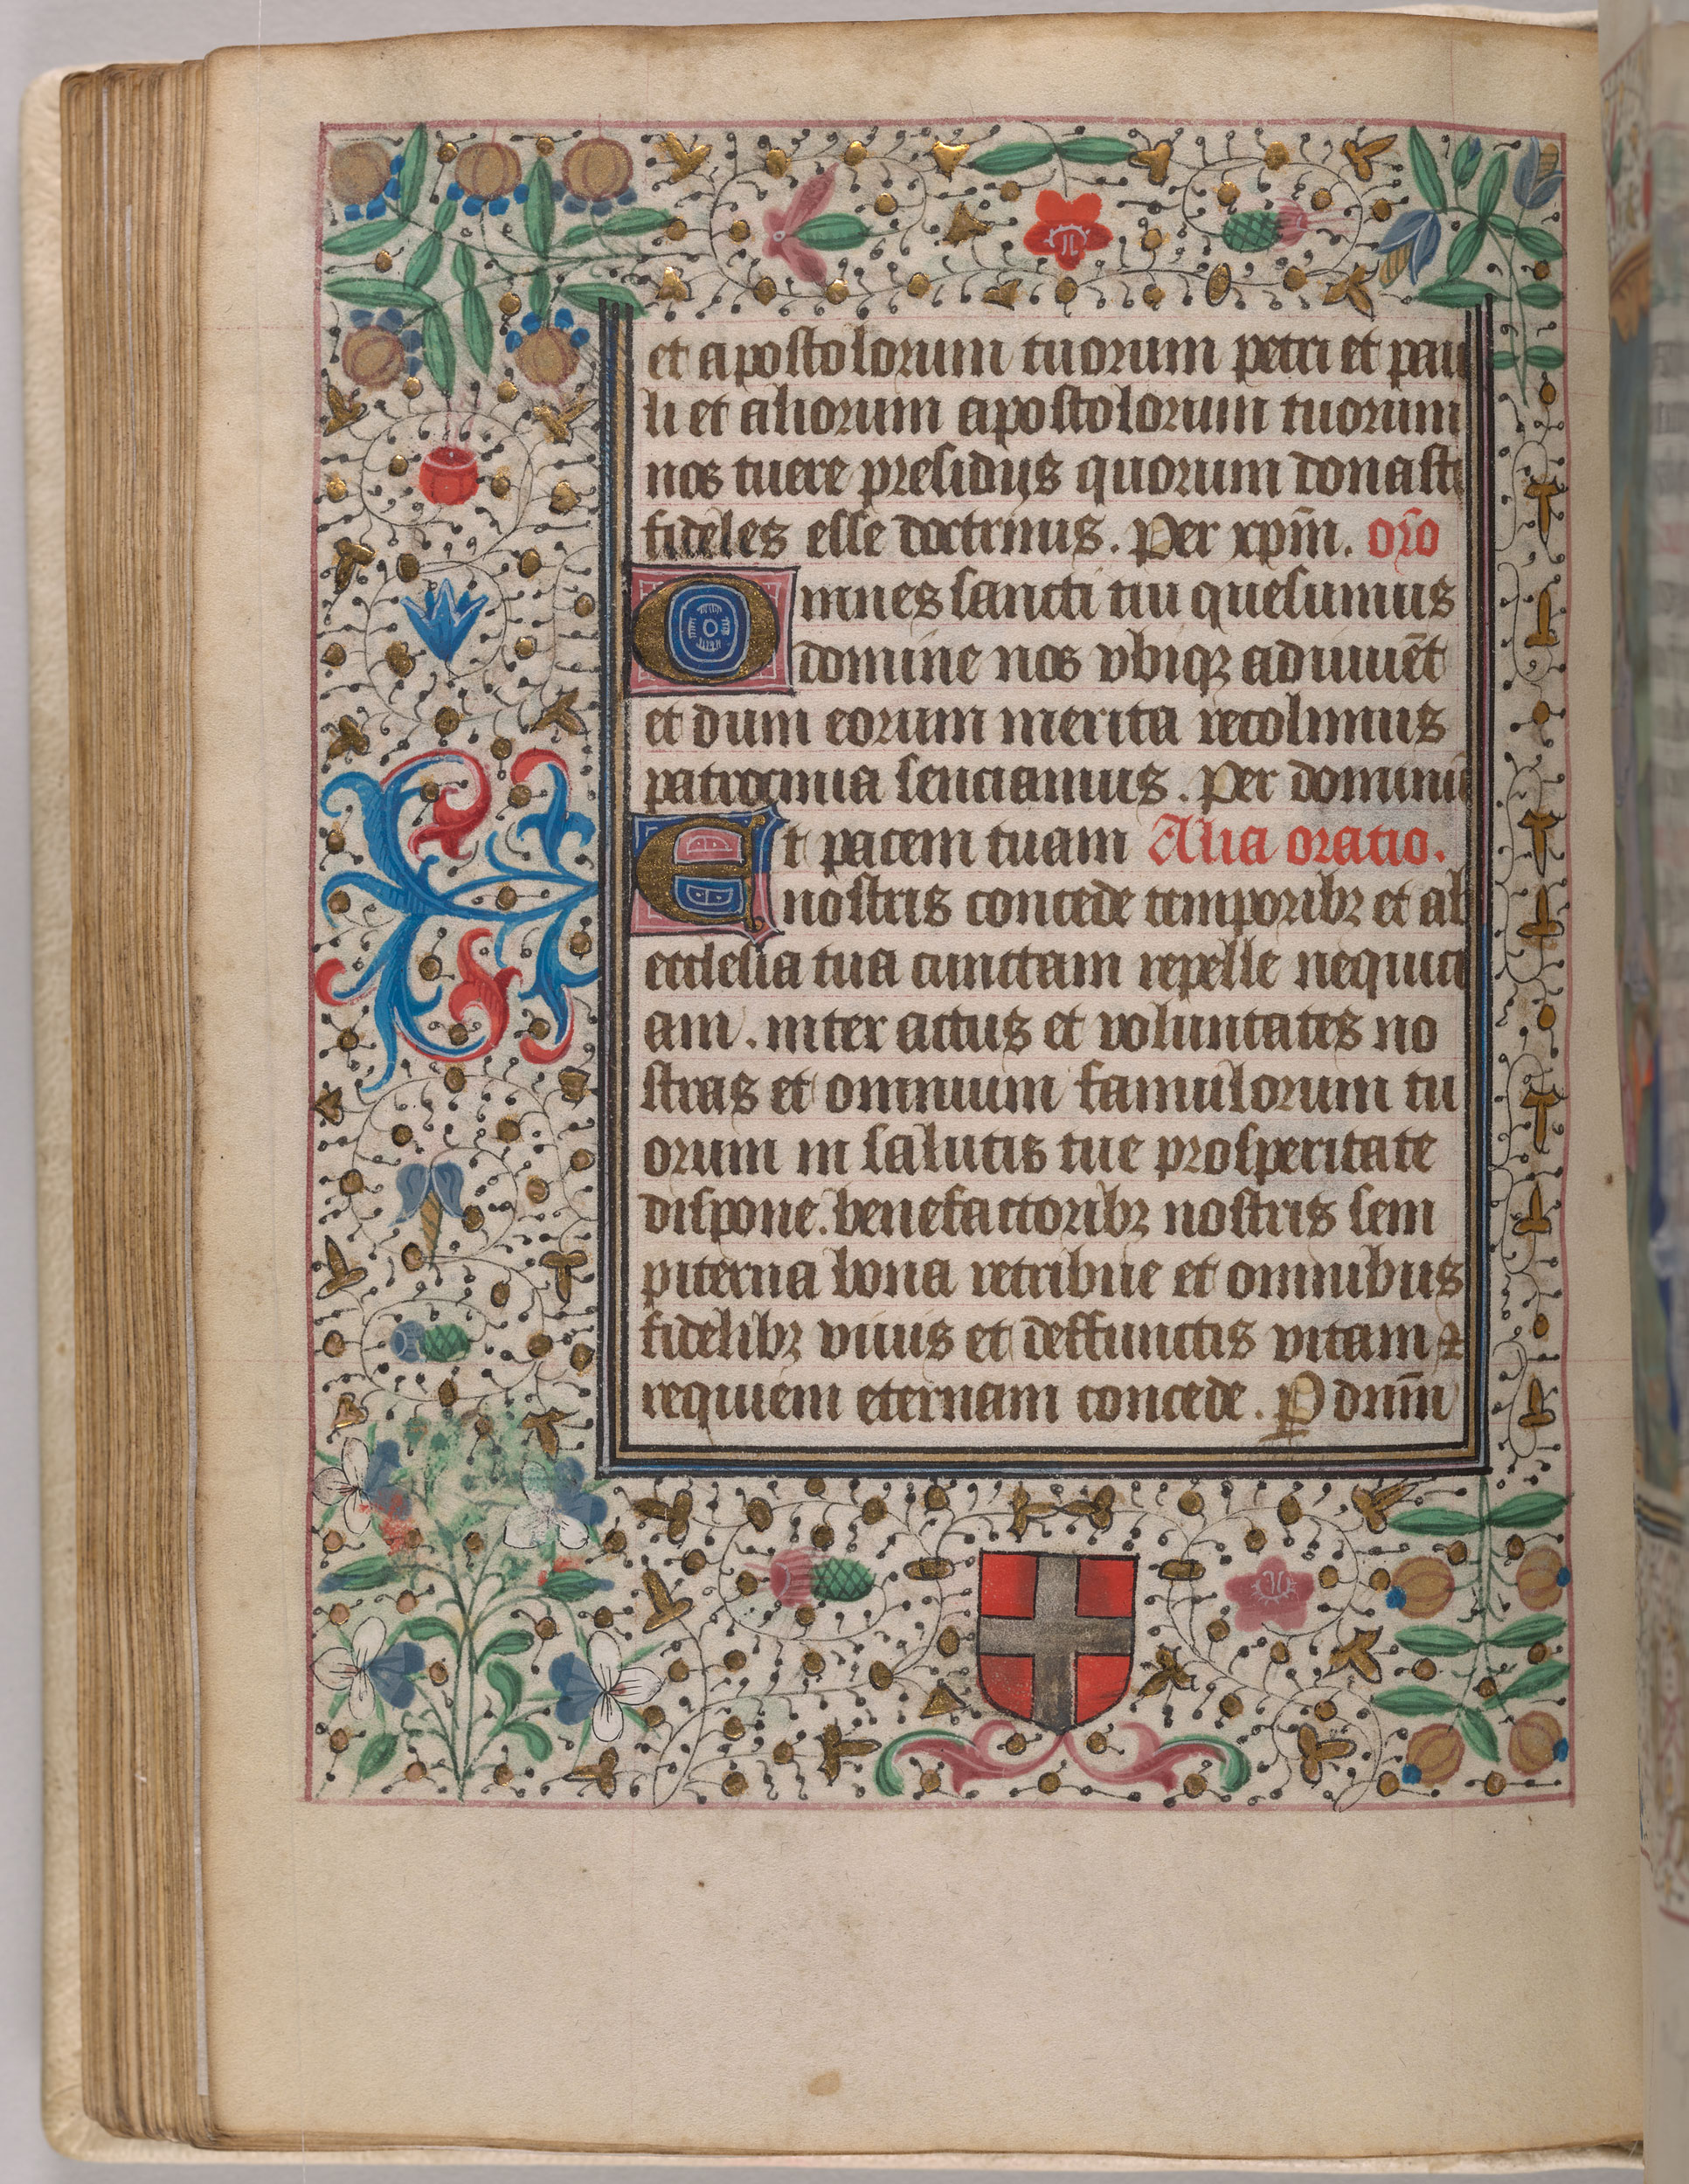 et apostolorum tuorum petri et pau
li et aliorum apostolorum tuorum
nos tuere presidijs quorum donasti
fideles esse doctrinis. Per xpm̄. or̄o
Omnes sancti tui quesumus
domine nos vbiqꝫ adiuuēt
et dum eorum merita recolimus
patrocinia senciamus. Per dominū
Et pacem tuam Alia oratio.
nostris concede temporibꝫ et ab
ecclesia tua cunctam repelle nequici
am. inter actus et voluntates no
stras et omnium famulorum tu
orum in salutis tue prosperitate
dispone. benefactoribꝫ nostris sem
piterna bona retribue et omnibus
fidelibꝫ viuis et deffunctis vitam ⁊
requiem eternam concede. ꝑ dnm̄